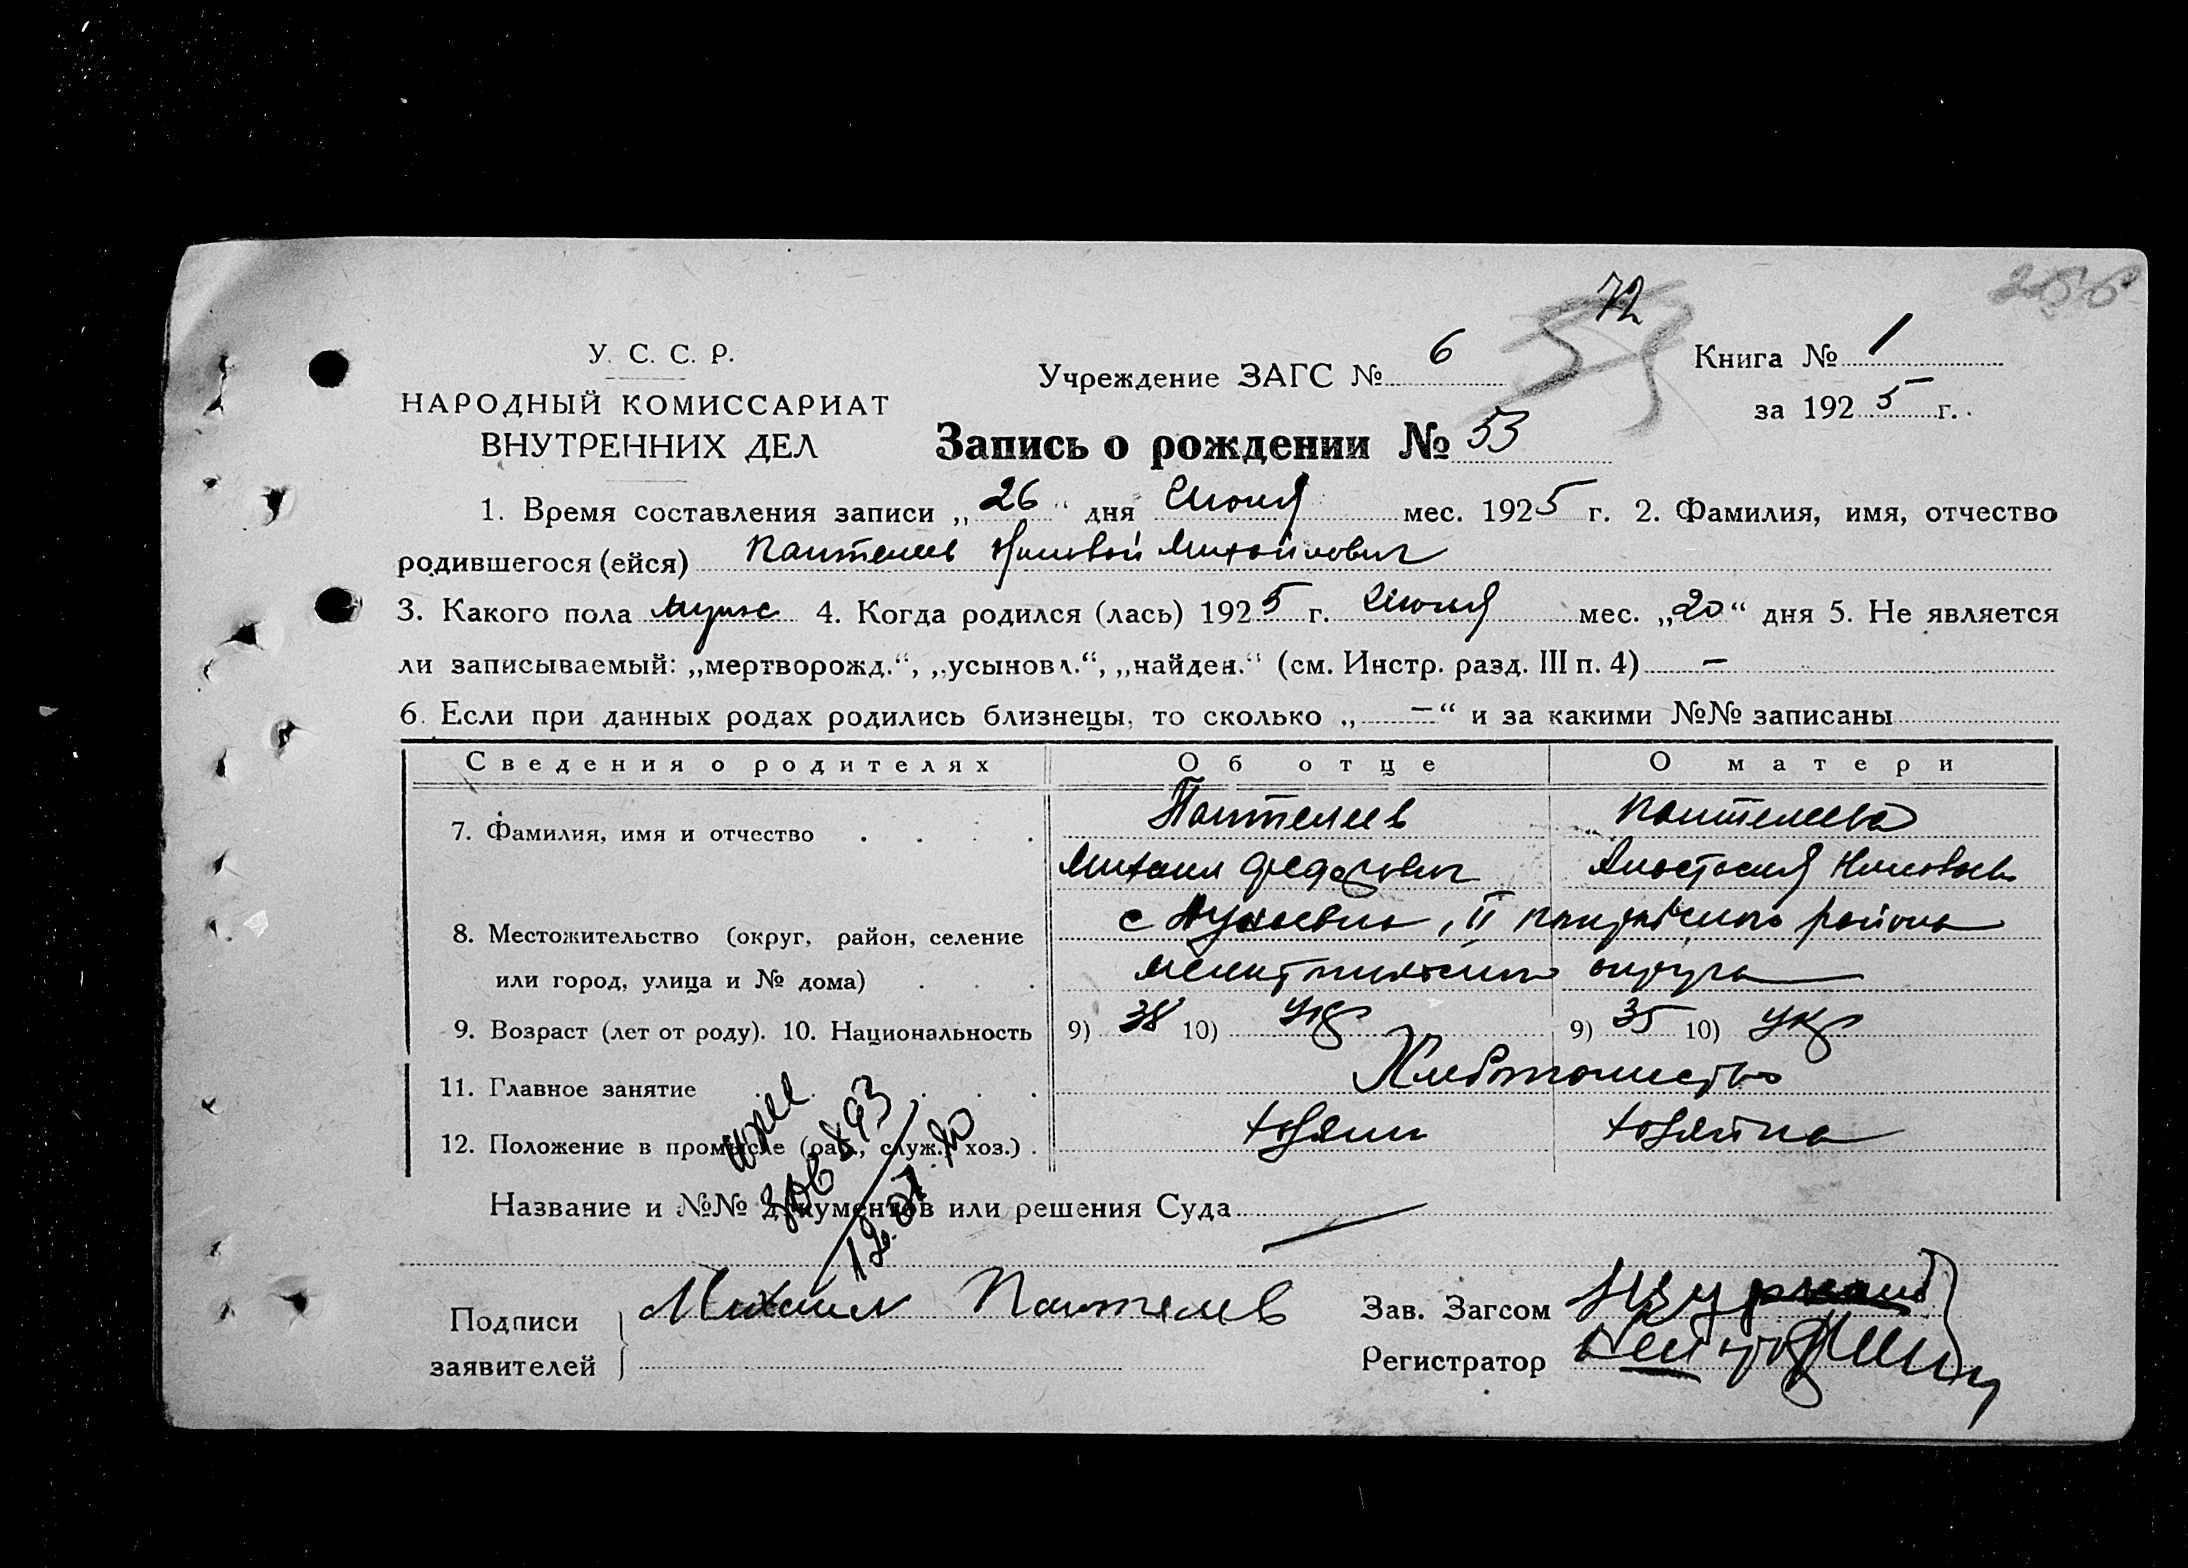 72
256
У. С. С. Р.
НАРОДНЫЙ КОМИССАРИАТ
ВНУТРЕННИХ ДЕЛ
Учреждение ЗАГС № 6
Книга № 1
за 1925 г.
Запись о рождении № 53
1. Время составления записи „26“ дня Июня мес. 1925 г. 2. Фамилия, имя, отчество
родившегося (ейся) Пантелеев Михайлович
3. Какого пола мужс 4. Когда родился (лась) 1925 г. Июня мес. „20“ дня 5. Не является
ли записываемый: „мертворожд.“, „усыновл.“, „найден.“ (см. Инстр. разд. III п. 4) –
6. Если при данных родах родились близнецы, то сколько „–“ и за какими №№ записаны
Сведения о родителях Об отце О матери
7. Фамилия, имя и отчество Пантелеев Пантелеева
Михаил Федорович Анастасия
8. Местожительство (округ, район, селение с , II района
или город, улица и № дома) округа
9. Возраст (лет от роду). 10. Национальность 9) 38 10) Укр 9) 35 10) Укр
11. Главное занятие Хлебопашество
12. Положение в промысле (раб., служ., хоз.) хозяин хозяйка
Название и №№ документов или решения Суда
Подписи
заявителей
Михаил Пантелеев
Зав. Загсом
Регистратор